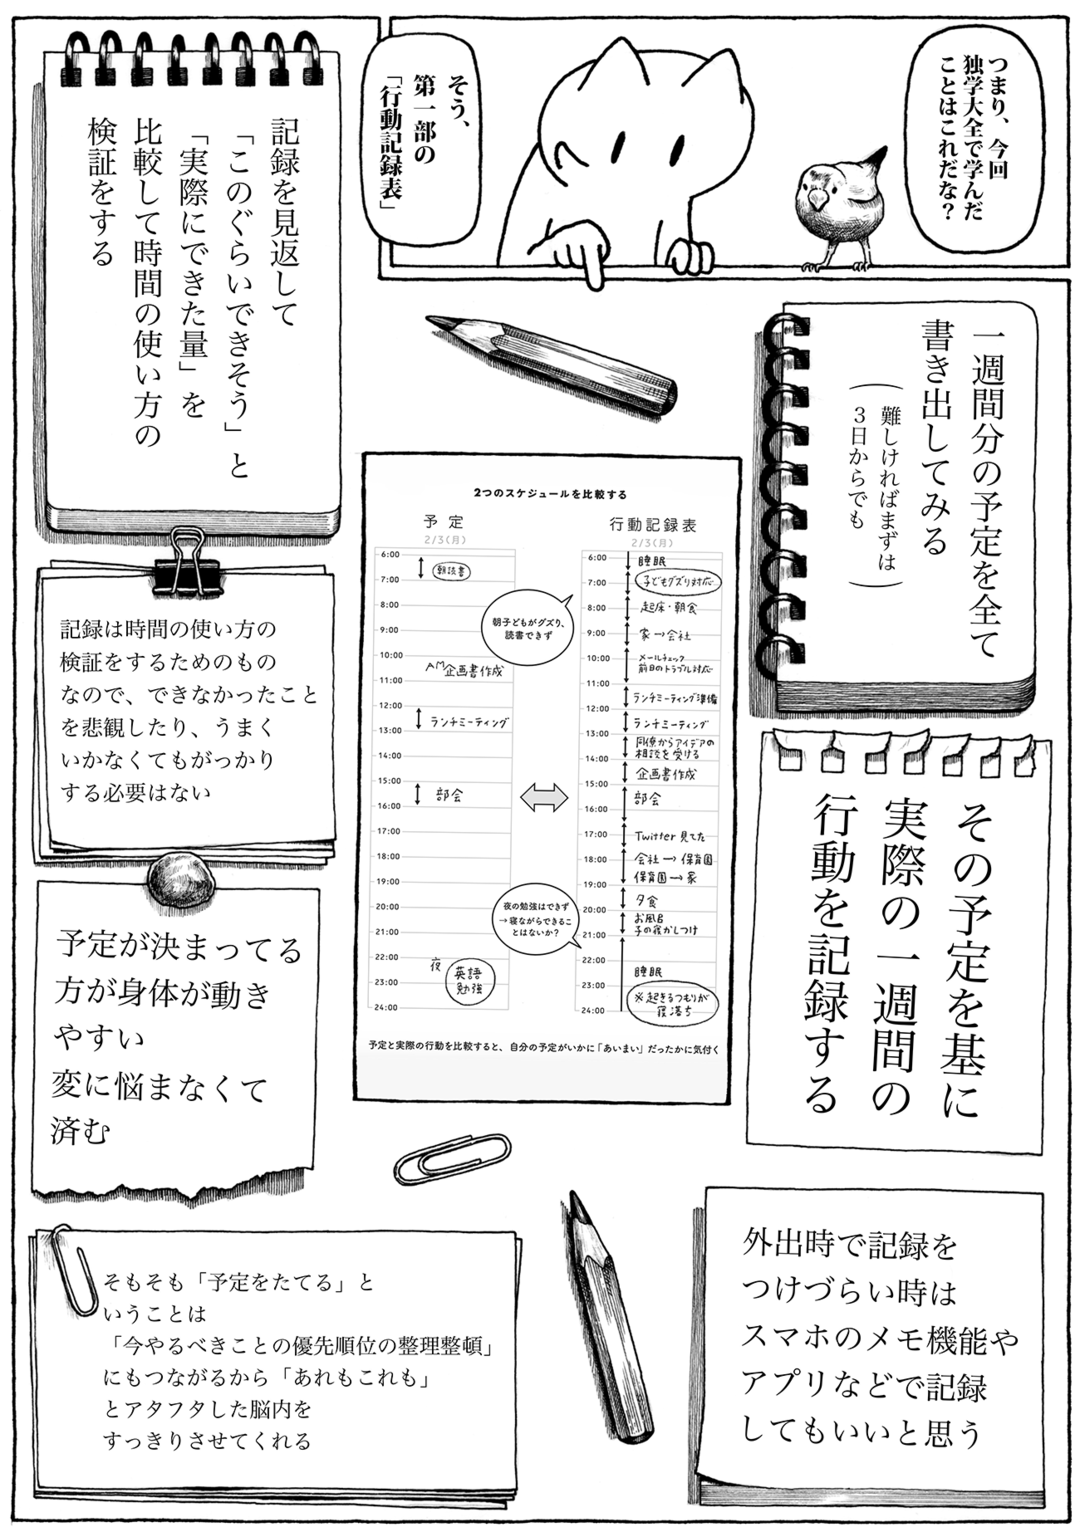 つまり、今回
独学大全で学んだ
ことはこれだな?
そう、
第一部の
「行動記録表」
一週間分の予定を全て
書き出してみる
(難しければまずは
3日からでも)
その予定を基に
実際の一週間の
行動を記録する
外出時で記録を
つけづらい時は
スマホのメモ機能や
アプリなどで記録
してもいいと思う
2つのスケジュールを比較する
予定
2/3(月)
6:00
朝読書
7:00
8:00
9:00
10:00
AM企画書作成
11:00
12:00
ランチミーティング
13:00
14:00
15:00
部会
16:00
17:00
18:00
19:00
20:00
21:00
22:00
夜 英語
勉強
23:00
24:00
朝子どもがグズり、
読書できず
夜の勉強はできず
→寝ながらできるこ
とはないか?
行動記録表
2/3(月)
6:00
睡眠
7:00
子どもグズり対応
8:00
起床・朝食
9:00
家→会社
10:00
メールチェック
前日のトラブル対応
11:00
ランチミーティング準備
12:00
ランチミーティング
13:00
同僚からアイデアの
相談を受ける
14:00
企画書作成
15:00
部会
16:00
17:00
Twitter見てた
18:00
会社→保育園
保育園→家
19:00
夕食
20:00
お風呂
子の寝かしつけ
21:00
22:00
睡眠
23:00
※起きるつもりが
寝落ち
24:00
予定と実際の行動を比較すると、自分の予定がいかに「あいまい」だったかに気付く
記録を見返して
「このぐらいできそう」と
「実際にできた量」を
比較して時間の使い方の
検証をする
記録は時間の使い方の
検証をするためのもの
なので、できなかったこと
を悲観したり、うまく
いかなくてもがっかり
する必要はない
予定が決まってる
方が身体が動き
やすい
変に悩まなくて
済む
そもそも「予定をたてる」と
いうことは
「今やるべきことの優先順位の整理整頓」
にもつながるから「あれもこれも」
とアタフタした脳内を
すっきりさせてくれる